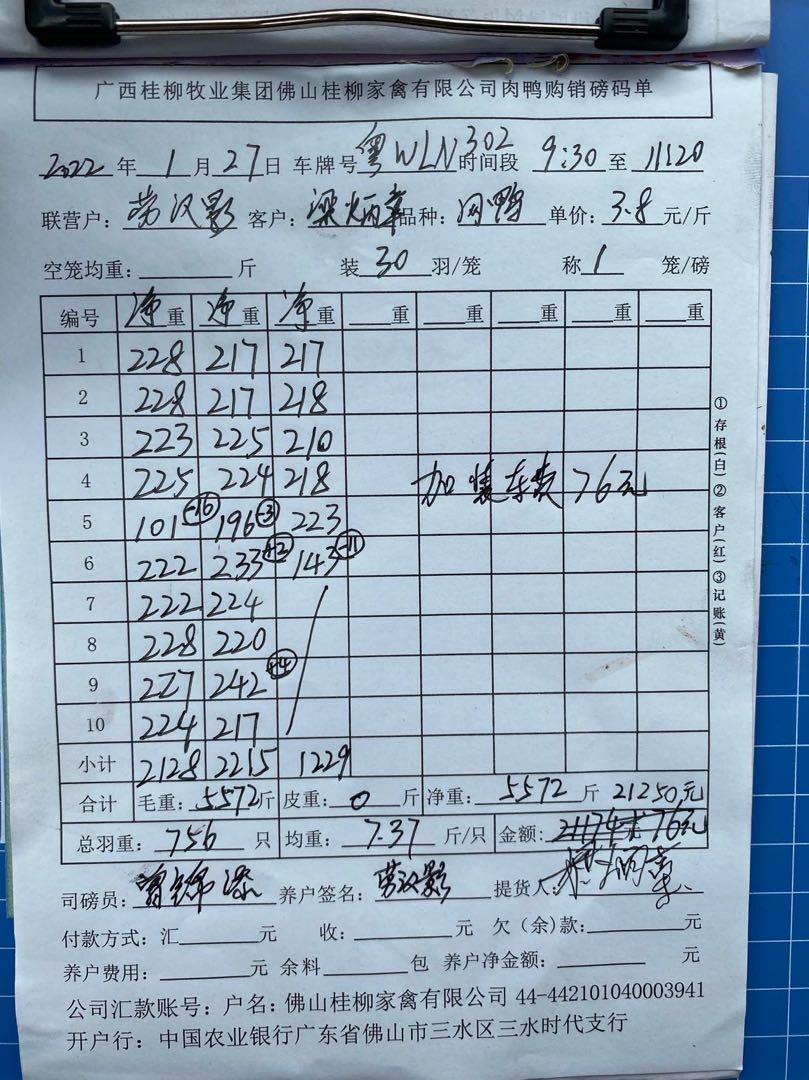 广西桂柳牧业集团佛山桂柳家禽有限公司肉鸭购销磅码单
2022 年 1 月 27 日 车牌号 粤WLN302 时间段 9:30 至 11:20
联营户: 劳汉影 客户: 梁炳章 品种: 网鸭 单价: 3.8 元/斤
空笼均重: 斤 装 30 羽/笼 称 1 笼/磅
编号 净重 净重 净重 重 重 重 重 重
1 228 217 217
2 228 217 218
3 223 225 210
4 225 224 218 加装车费76元
5 101 -16 196 -3 223
6 222 233 +2 143 -11
7 222 224
8 228 220
9 227 242 +4
10 224 217
小计 2128 2215 1229
合计 毛重: 5572 斤 皮重: 0 斤 净重: 5572 斤 21250元
总羽重: 756 只 均重: 7.37 斤/只 金额: 21174元 76元
司磅员: 养户签名: 劳汉影 提货人:
付款方式: 汇 元 收: 元 欠(余)款: 元
养户费用: 元 余料 包 养户净金额: 元
公司汇款账号: 户名: 佛山桂柳家禽有限公司 44-442101040003941
开户行: 中国农业银行广东省佛山市三水区三水时代支行
①存根(白)②客户(红)③记账(黄)